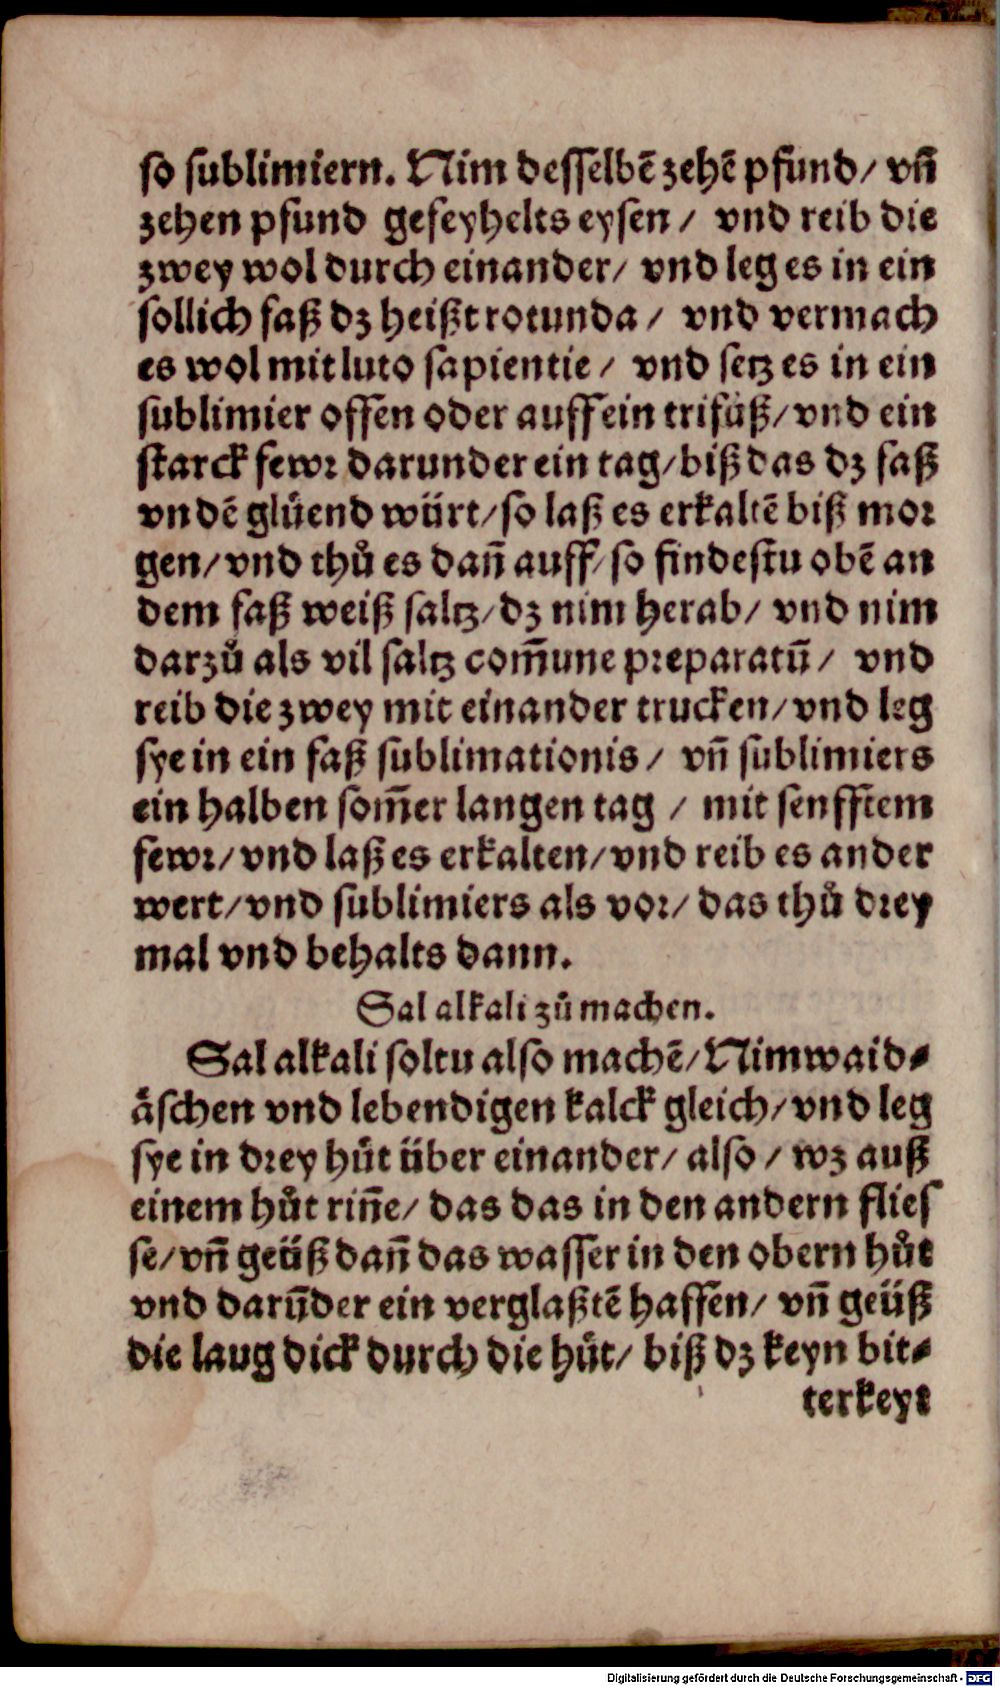 so sublimiern. Nim desselbē zehē pfund/ vñ
zehen pfund gefeyhelts eysen/ vnd reib die
zwey wol durch einander/ vnd leg es in ein
sollich faß dz heißt rotunda/ vnd vermach
es wol mit luto sapientie/ vnd setz es in ein
sublimier offen oder auff ein trifůß/ vnd ein
starck fewr darunder ein tag/ biß das dz faß
vndē glůend würt/ so laß es erkaltē biß mor
gen/ vnd thů es dañ auff/ so findestu obē an
dem faß weiß saltz/ dz nim herab/ vnd nim
darzů als vil saltz com̃une preparatū/ vnd
reib die zwey mit einander trucken/ vnd leg
sye in ein faß sublimationis/ vñ sublimiers
ein halben som̃er langen tag / mit senfftem
fewr/ vnd laß es erkalten/ vnd reib es ander
wert/ vnd sublimiers als vor/ das thů drey
mal vnd behalts dann.
Sal alkali zů machen.
Sal alkali soltu also machē/ Nim waid⸗
äschen vnd lebendigen kalck gleich/ vnd leg
sye in drey hůt über einander/ also / wz auß
einem hůt riñe/ das das in den andern flies
se/ vñ geüß dañ das wasser in den obern hůt
vnd darūder ein verglaßtē haffen/ vñ geüß
die laug dick durch die hůt/ biß dz keyn bit⸗
terkeyt
Digitalisierung gefördert durch die Deutsche Forschungsgemeinschaft - DFG